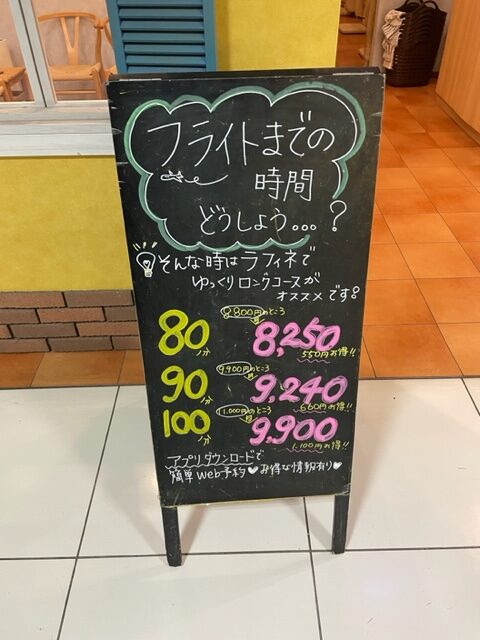 フライトまでの
時間
どうしよう...?
そんな時はラフィネで
ゆっくりロングコースが
オススメです。
8,800円のところ
80分 8,250
550円お得!!
9,900円のところ
90分 9,240
660円お得!!
11,000円のところ
100分 9,900
1,100円お得!!
アプリダウンロードで
簡単web予約♥お得な情報有り♥